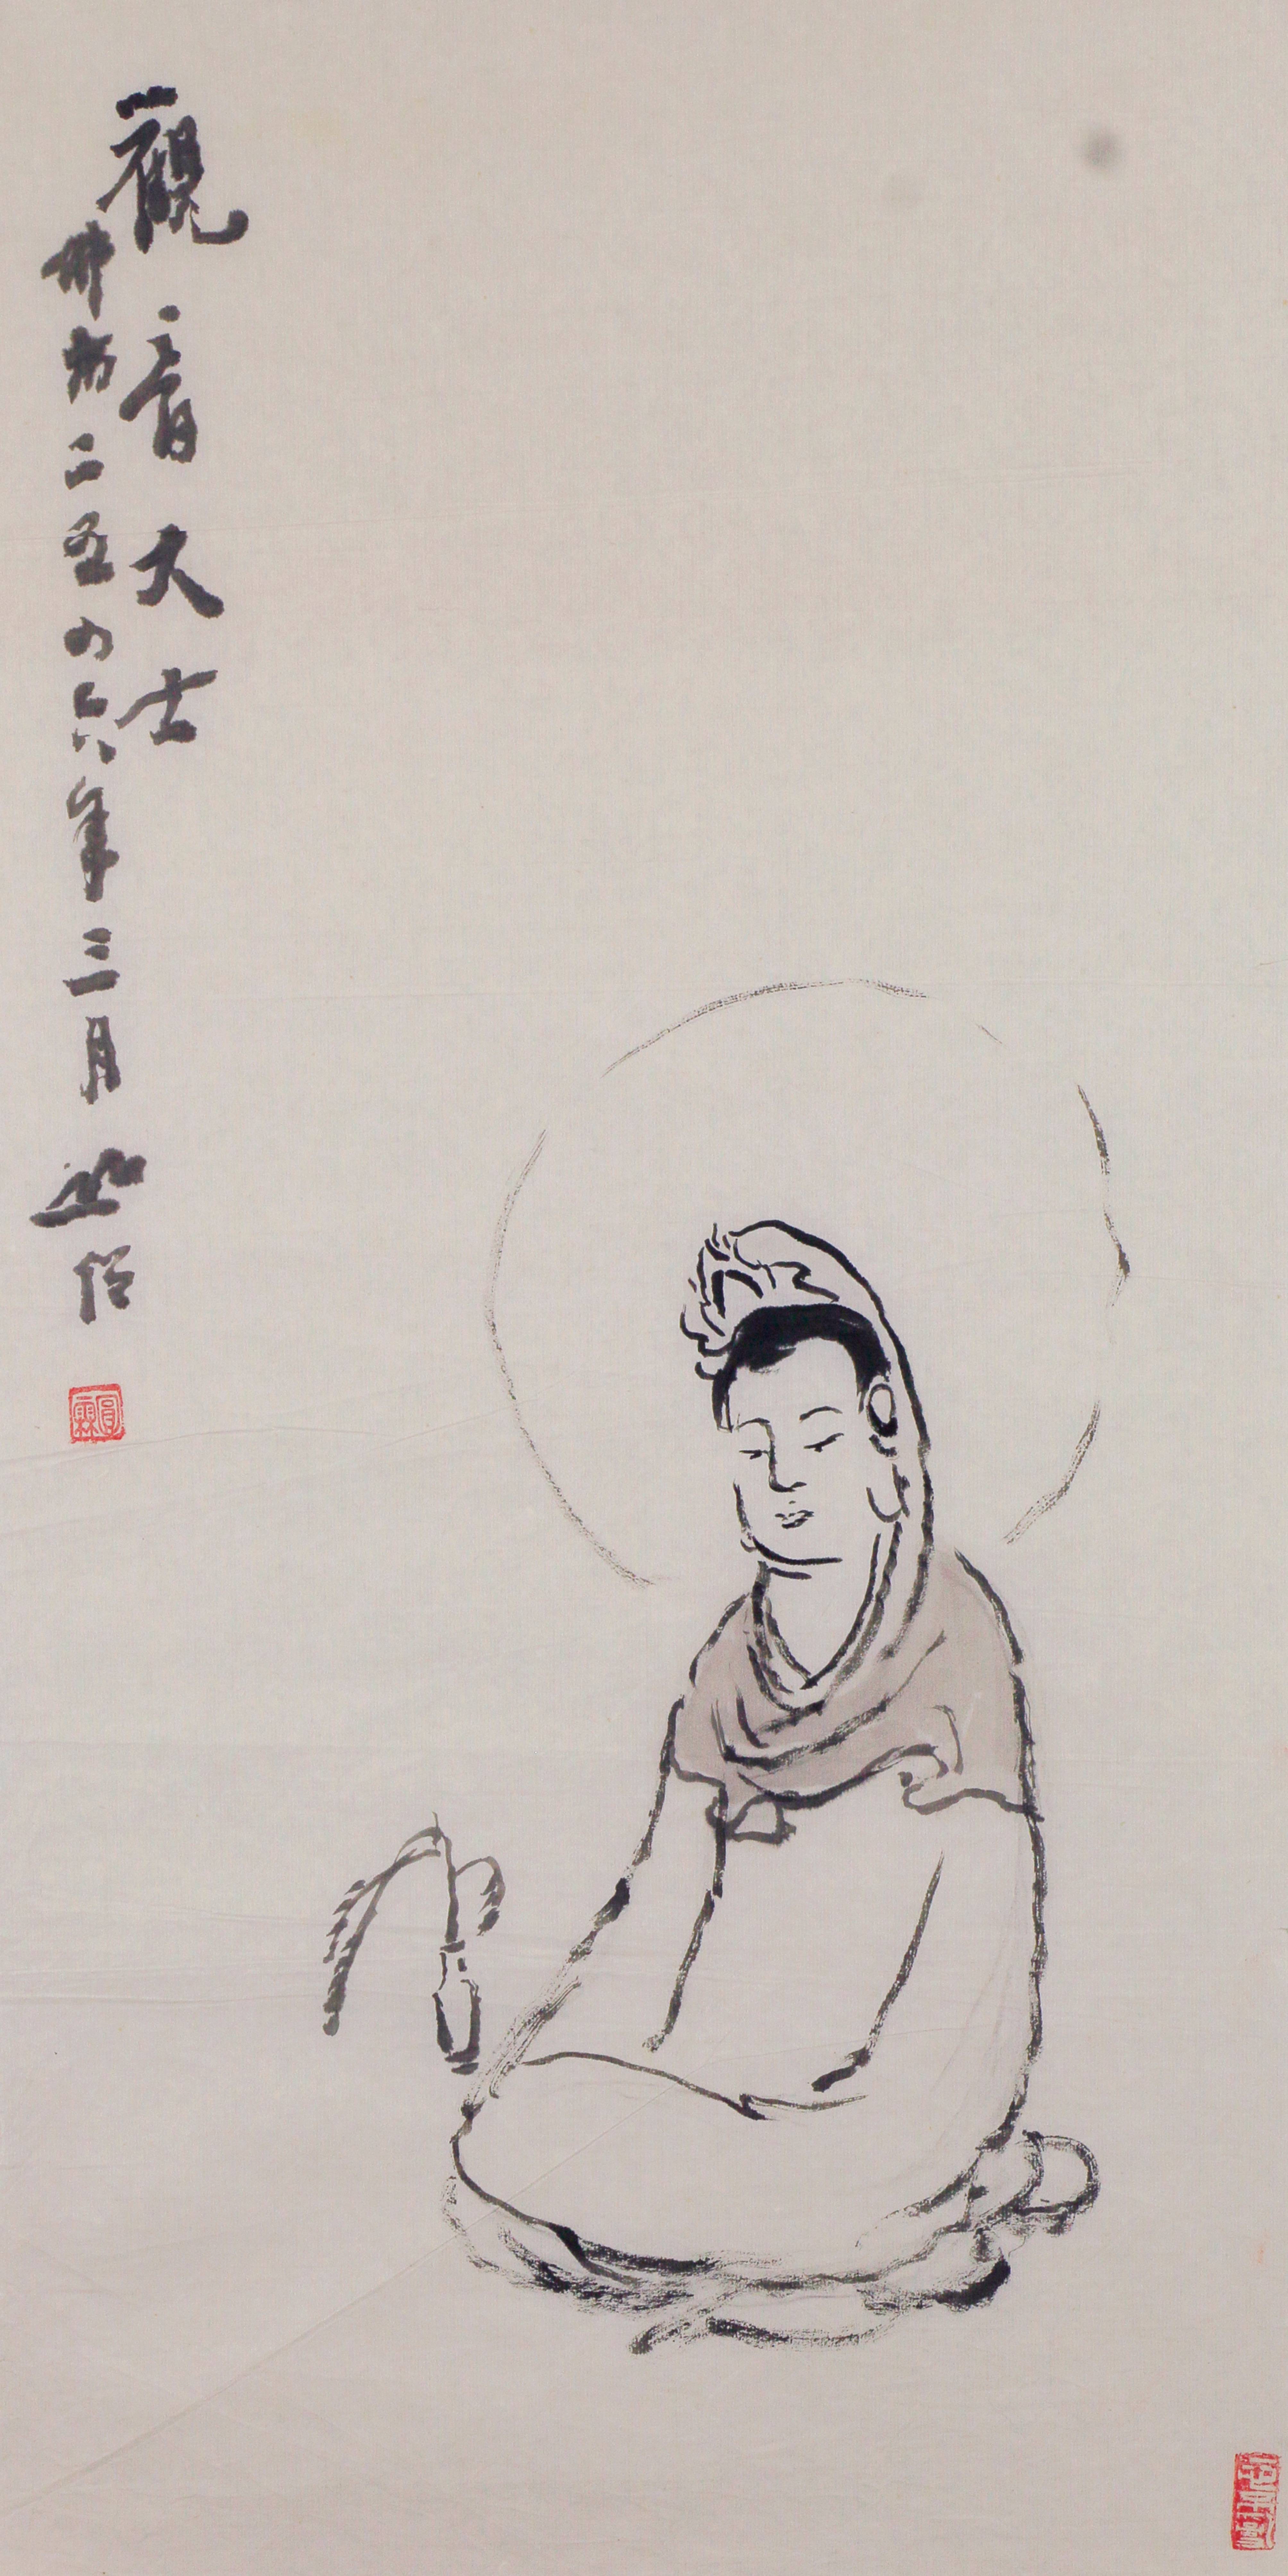 觀音大士
佛曆二五四六年三月